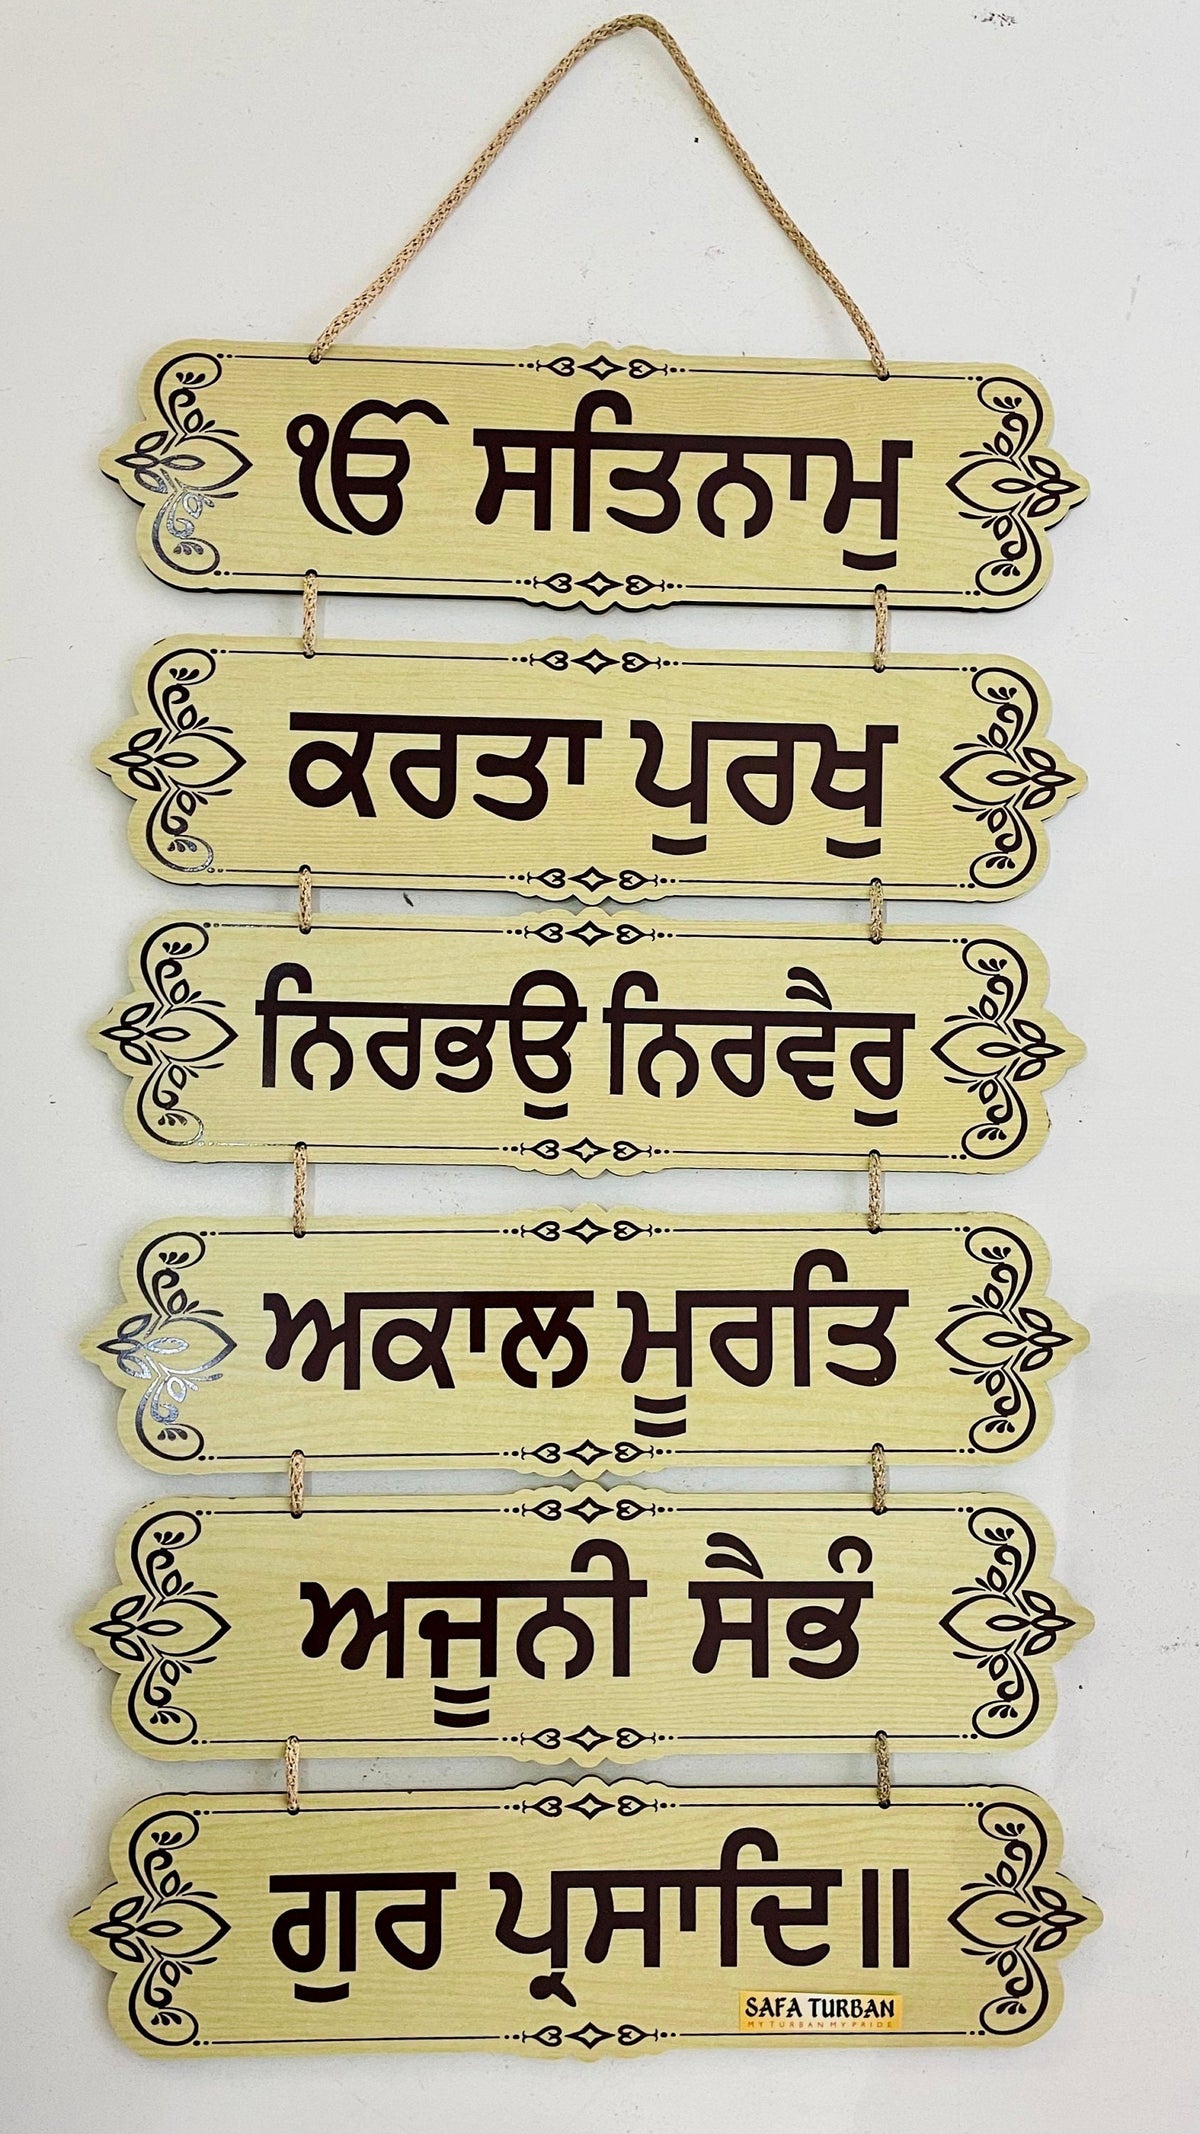 ੴ ਸਤਿਨਾਮੁ
ਕਰਤਾ ਪੁਰਖੁ
ਨਿਰਭਉ ਨਿਰਵੈਰੁ
ਅਕਾਲ ਮੂਰਤਿ
ਅਜੂਨੀ ਸੈਭੰ
ਗੁਰ ਪ੍ਰਸਾਦਿ॥
SAFA TURBAN
MY TURBAN MY PRIDE